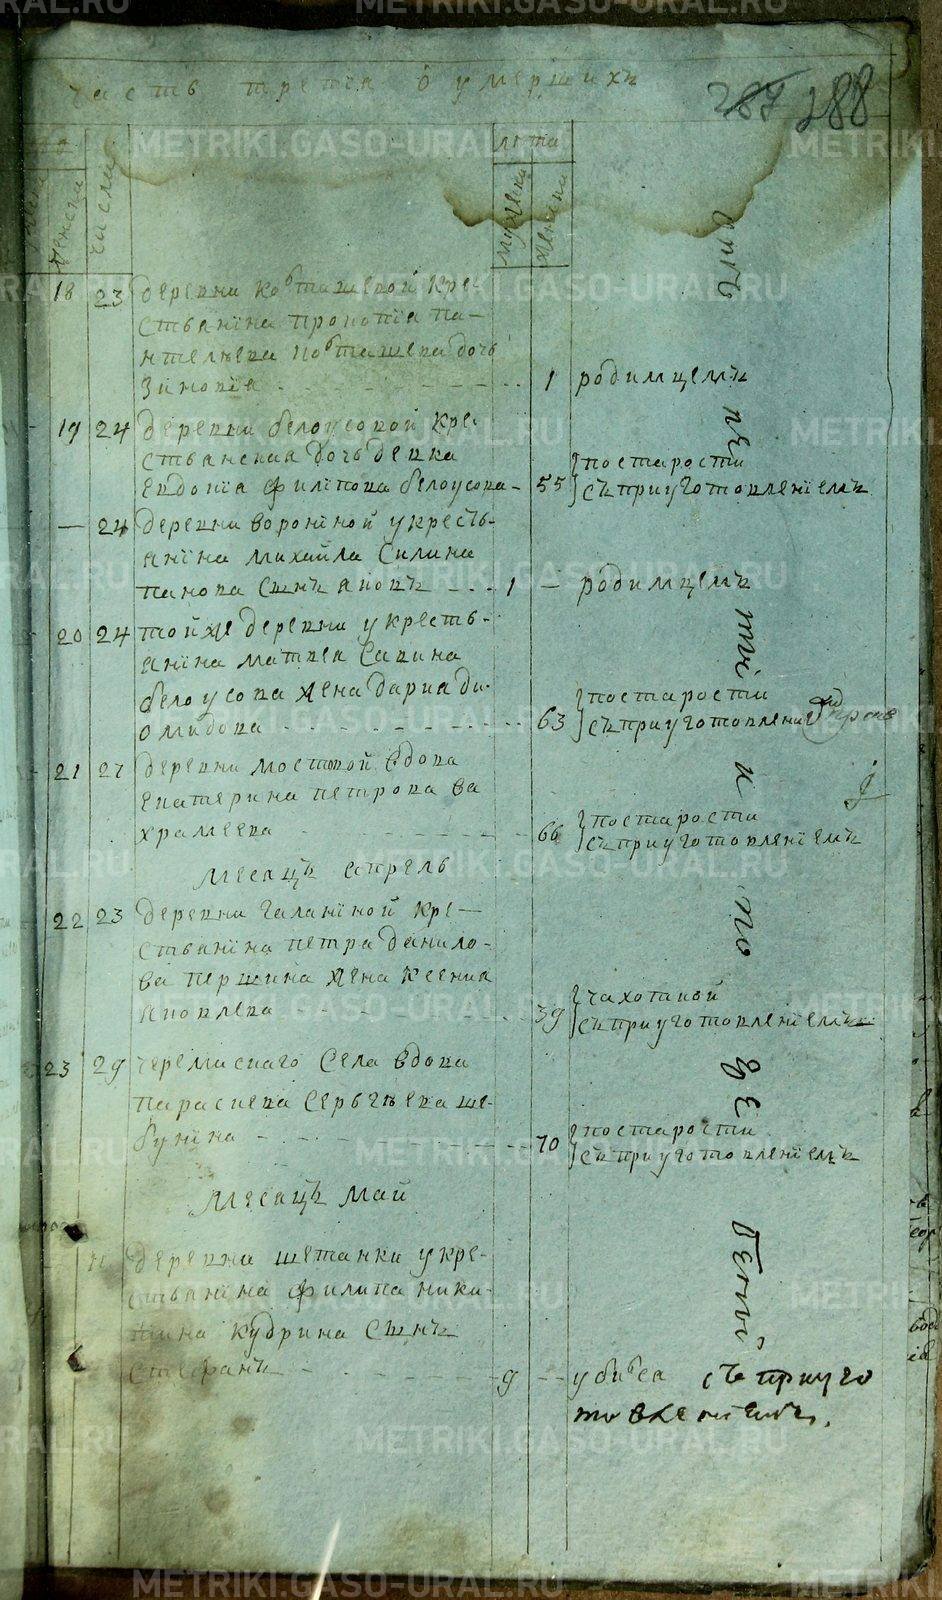 часть третїя о умершихъ
287 288
лета
женска
числа
мужеска
женска
18 23 деревни Ковташевой кре-
стьянїна прокопїа па-
нтелѣева Ковташева дочь
Зиновїя - - - 1 родимцемъ
19 24 деревни белоусовой кре-
стьянская дочь девка
Евдокїа Филїпова белоусова - 55 по старости
съ приуготовленїемъ
— 24 деревни воронїной у кресть-
янїна михайла Силина
панова сынъ яковъ - - - 1 - родимцемъ
20 24 той же деревни у кресть-
янїна матвея Савина
белоусова жена дариа ди-
омидова - - - 63 по старости
съ приуготовленїемъ
21 27 деревни мостовой вдова
Екатерина петрова ва
храмеева - - - 66 по старости
съ приуготовленїемъ
месяцъ апрель
22 23 деревни галанїной кре-
стьянїна петра данило-
ва першина жена Ксения
яковлева - - - 39 чахоткой
съ приуготовленїемъ
23 29 черемискаго села вдова
параскева Сергѣева ше-
бунїна - - - 70 по старости
съ приуготовленїемъ
месяцъ май
11 деревни шетанки у кре-
стьянїна филипа ники-
тина Кудрина сынъ
стефанъ - 9 -- убився съ приуго
товленїемъ.